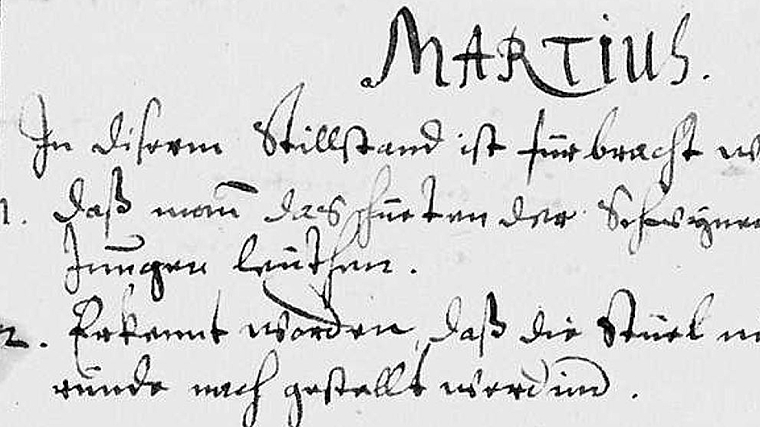 MARTIUS.
In diserm Stillstand ist fürbracht w
1. daß mann das hüeten der Schwynen
Jungen leüthen.
2. Erkennt worden, daß die Stüel
runde nach gestellt werdind.